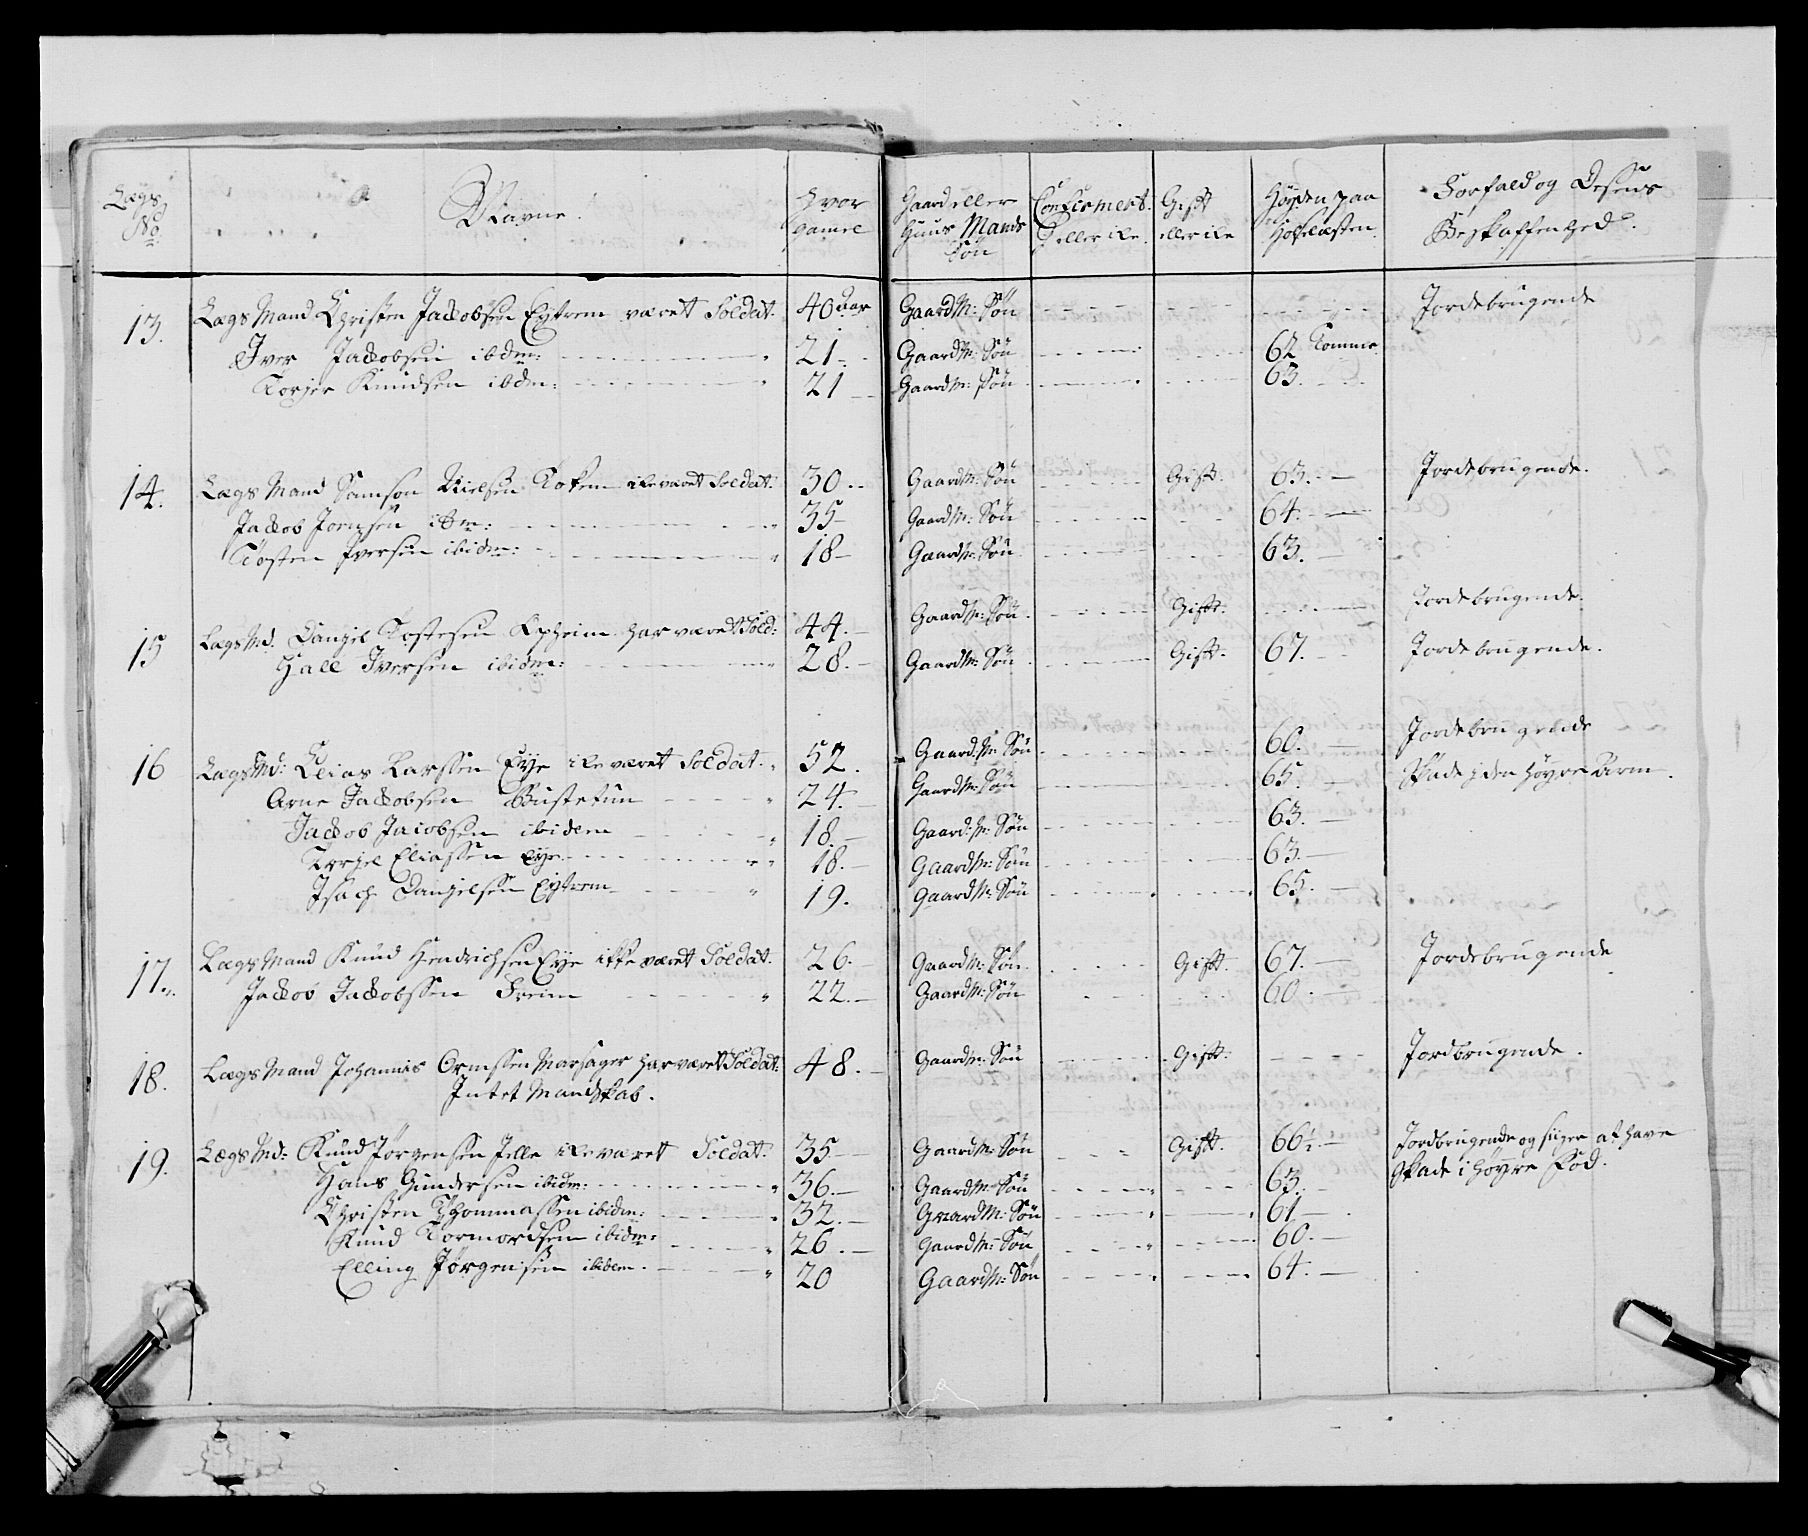 Lægs No: Navne. Hvor gamel Gaard eller Huus Mands Søn Confirmert eller ike. Gift eller ike Høyden paa Hofelæsten. Forfald og Desens Beskaffenhed.
13. Lægs Mand Christen Jackobsen Eytrem været Soldat. 40 aar Gaardm: Søn Jordebrugende
Iver Jackobsen ibdm: 21 Gaardm: Søn 62 Tomme
Torger Knudsen ibdm: 21 Gaardm: Søn 63.
14. Lægs Mand Samson Nielsen ike været Soldat: 30 Gaardm: Søn Gift. 63. Jordebrugende.
Jackob Joensen ibm: 35 Gaardm: Søn 64.
Tosten Iversen ibidm: 18 Gaardm: Søn 63.
15 Lægs Md. Dangel Tostesen Opheim har været Sold: 44. Gaardm: Søn Gift. Jordebrugende.
Hall Iversen ibidm: 28. Gaardm: Søn Gift. 67. Jordebrugende.
16 Lægs Md: Elias Larssen Eye ike været Soldat. 52. Gaardm: Søn 60. Jordebrugende
Arne Jackobsen Bustetun 24. Gaardm: Søn 65. Skade i den høyre Arm.
Jackob Jacobsen ibidem 18. Gaard: m: Søn 63.
Eliassen Eye 18. Gaardm: Søn 63.
Isach Dangelsen Eytrem 19. Gaardm: Søn 65.
17. Lægs Mand Knud Hendrichsen Eye ikke været Soldat. 26. Gaardm: Søn Gift. 67. Jordebrugende
Jackob Jackobssen Freim 22. Gaardm: Søn 60.
18. Lægs Mand Johannis Ormssen Marsager har været Soldat: 48. Gaardm: Søn Gift. Jordbrugende.
Intet Mandskab.
19. Lægs Md: Knud Jørgenssen Jelle ike været Soldat. 35 Gaardm: Søn Gift. 66. Jordbrugende og siiger at have
Hans Gundersen ibidm: 36. Gaardm: Søn 63. Skade i høyre Fod.
Christen Thommassen ibidm: 32. Gaardm: Søn 61
Knud Tormordsen ibidm: 26. Gaardm: Søn 60.
Elling Jørgensen ibidem. 20 Gaardm: Søn 64.